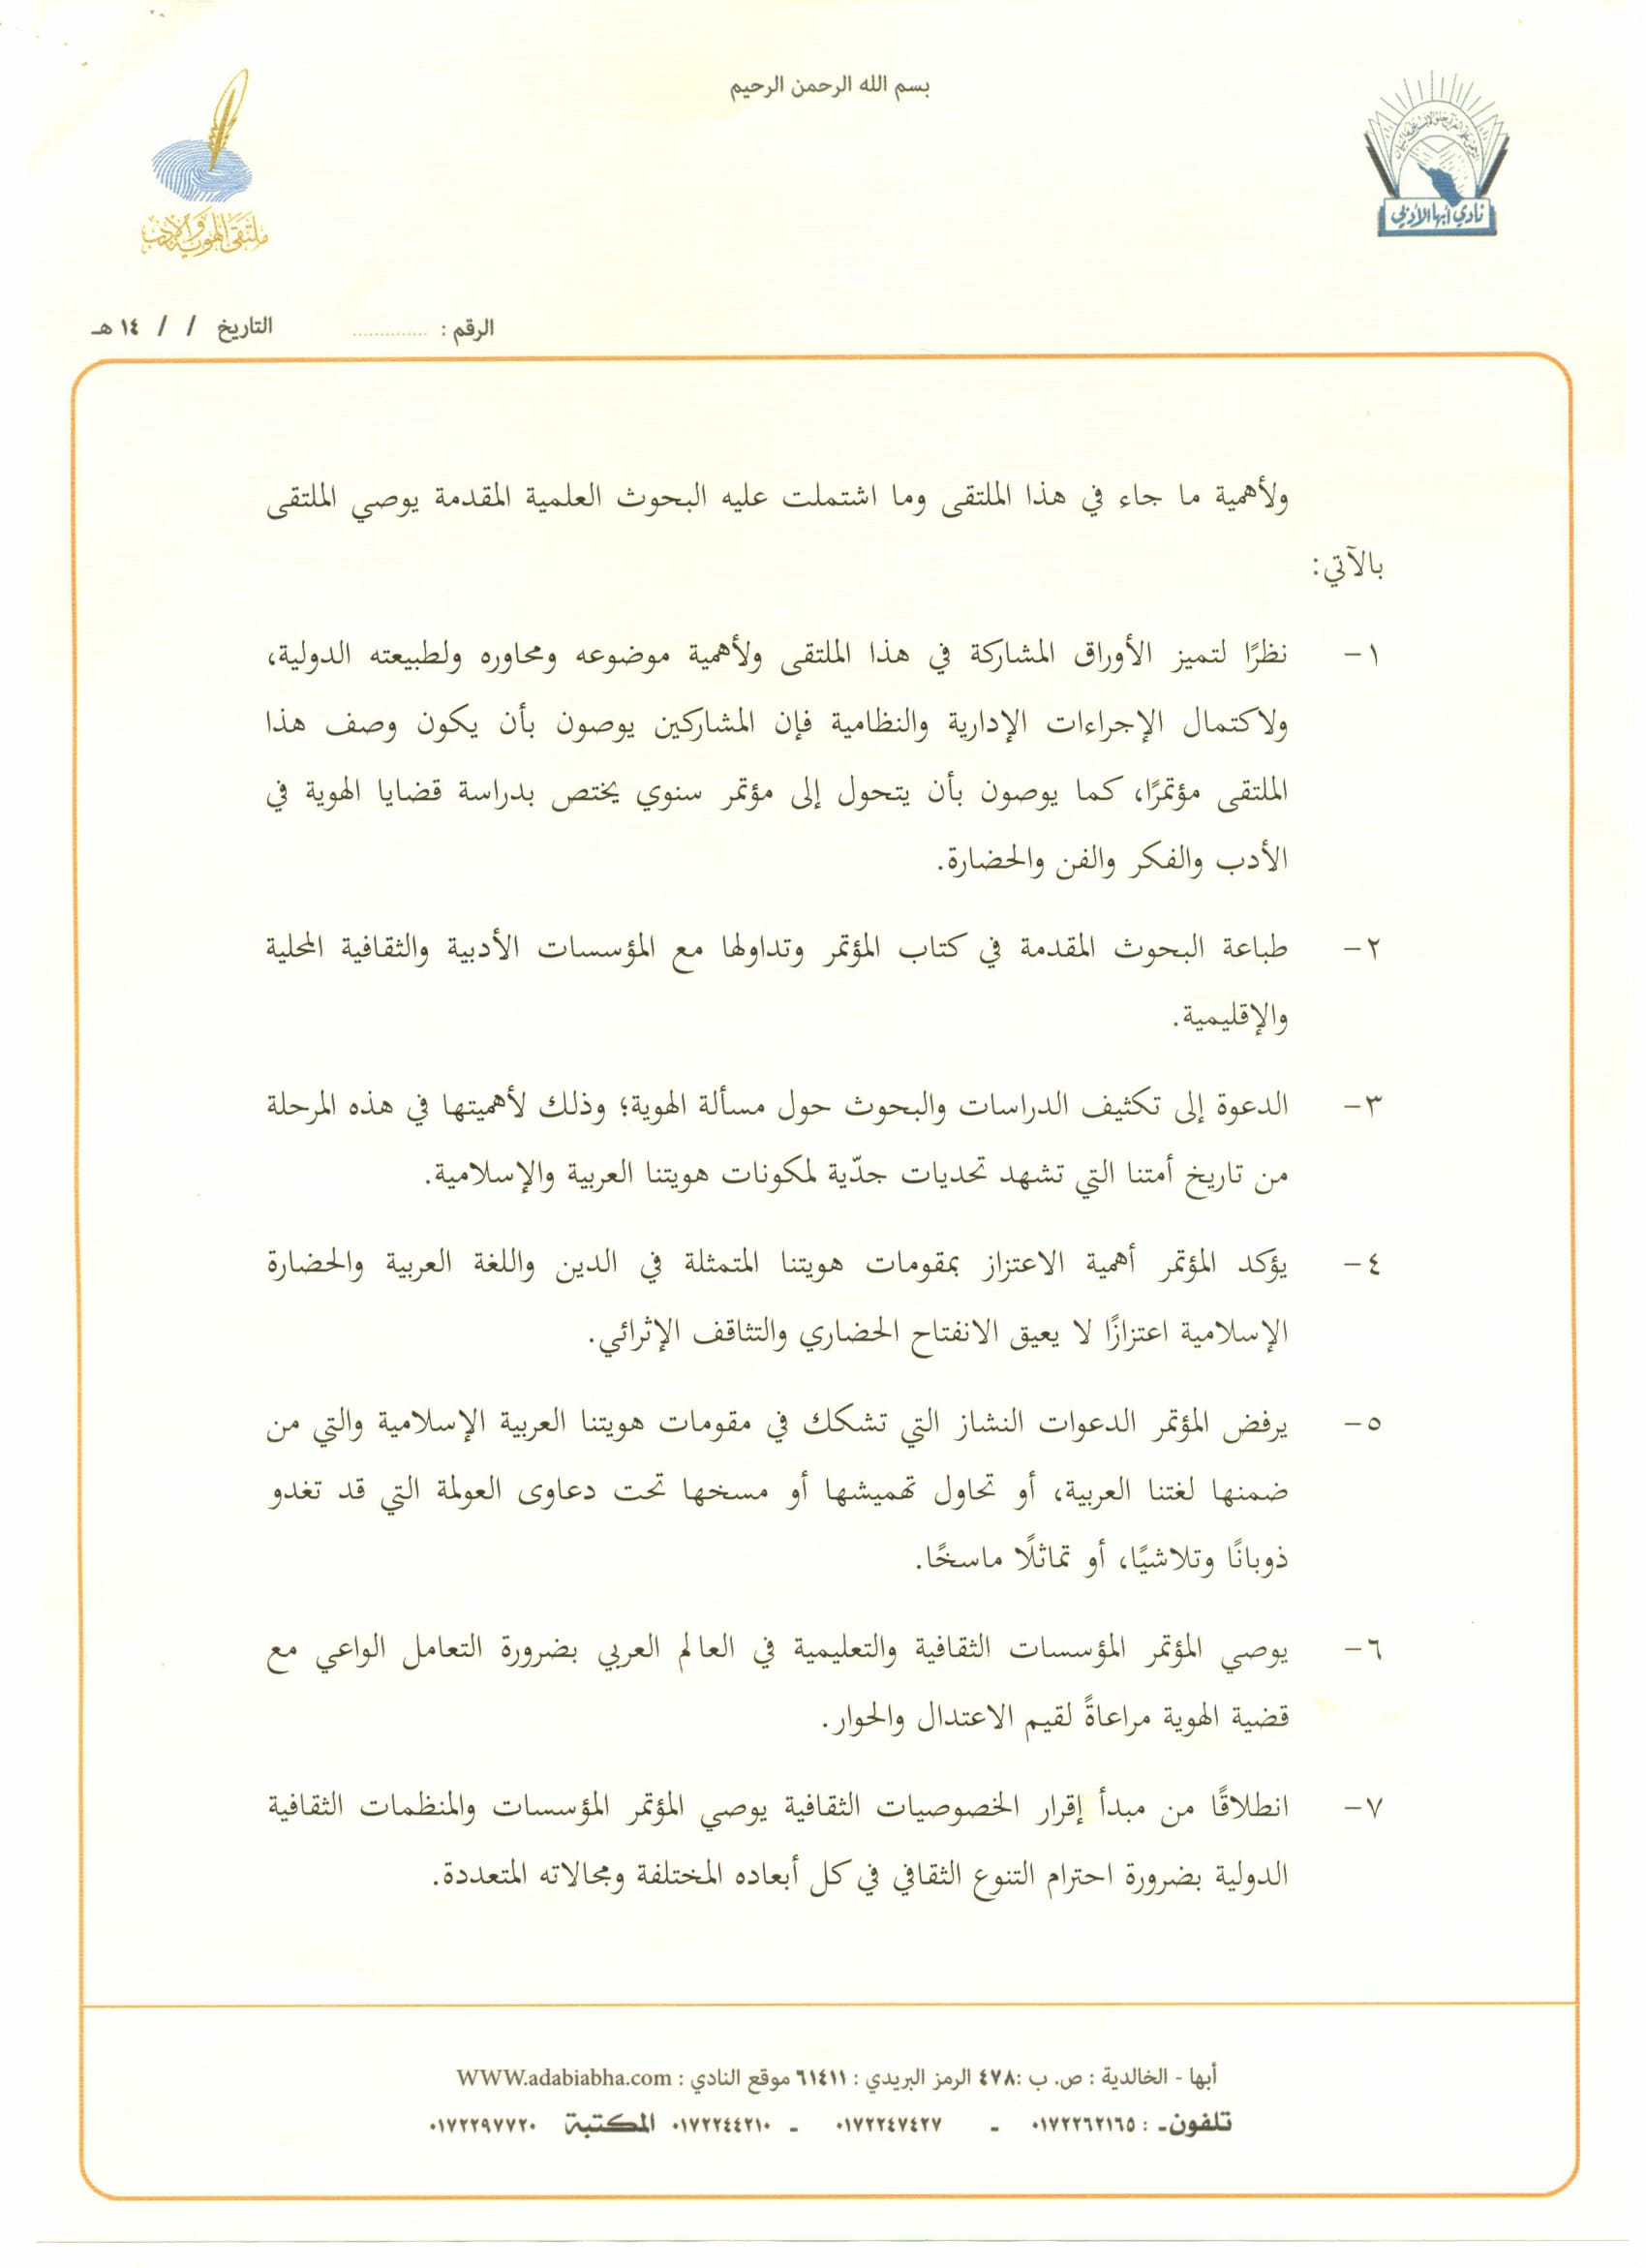 بسم الله الرحمن الرحيم
نادي أبها الأدبي
ملتقى الهوية والأدب
الرقم : .............. التاريخ / / ١٤ هـ
ولأهمية ما جاء في هذا الملتقى وما اشتملت عليه البحوث العلمية المقدمة يوصي الملتقى
بالآتي:
١- نظرًا لتميز الأوراق المشاركة في هذا الملتقى ولأهمية موضوعه ومحاوره ولطبيعته الدولية،
ولاكتمال الإجراءات الإدارية والنظامية فإن المشاركين يوصون بأن يكون وصف هذا
الملتقى مؤتمرًا، كما يوصون بأن يتحول إلى مؤتمر سنوي يختص بدراسة قضايا الهوية في
الأدب والفكر والفن والحضارة.
٢- طباعة البحوث المقدمة في كتاب المؤتمر وتداولها مع المؤسسات الأدبية والثقافية المحلية
والإقليمية.
٣- الدعوة إلى تكثيف الدراسات والبحوث حول مسألة الهوية؛ وذلك لأهميتها في هذه المرحلة
من تاريخ أمتنا التي تشهد تحديات جدّية لمكونات هويتنا العربية والإسلامية.
٤- يؤكد المؤتمر أهمية الاعتزاز بمقومات هويتنا المتمثلة في الدين واللغة العربية والحضارة
الإسلامية اعتزازًا لا يعيق الانفتاح الحضاري والتثاقف الإثرائي.
٥- يرفض المؤتمر الدعوات النشاز التي تشكك في مقومات هويتنا العربية الإسلامية والتي من
ضمنها لغتنا العربية، أو تحاول تهميشها أو مسخها تحت دعاوى العولمة التي قد تغدو
ذوبانًا وتلاشيًا، أو تماثلًا ماسخًا.
٦- يوصي المؤتمر المؤسسات الثقافية والتعليمية في العالم العربي بضرورة التعامل الواعي مع
قضية الهوية مراعاةً لقيم الاعتدال والحوار.
٧- انطلاقًا من مبدأ إقرار الخصوصيات الثقافية يوصي المؤتمر المؤسسات والمنظمات الثقافية
الدولية بضرورة احترام التنوع الثقافي في كل أبعاده المختلفة ومجالاته المتعددة.
أبها - الخالدية : ص. ب :٤٧٨ الرمز البريدي : ٦١٤١١ موقع النادي : WWW.adabiabha.com
تلفون- : ٠١٧٢٢٦٢١٦٥ - ٠١٧٢٢٤٧٤٢٧ - ٠١٧٢٢٤٤٢١٠ المكتبة ٠١٧٢٢٩٧٧٢٠